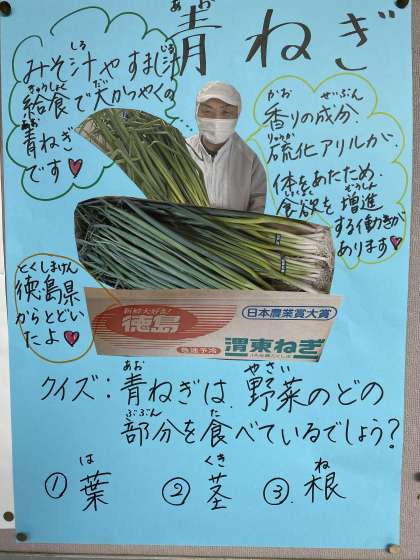 青ねぎ
あお
みそ汁やすまし汁
しる
じる
給食で大かつやくの
きゅうしょく
だい
青ねぎ
あお
です♥
香りの成分
かお
せいぶん
硫化アリルが、
りゅうか
体をあたため、
食欲を増進
ぞうしん
する働きが
あります♥
とくしまけん
徳島県
からとどい
たよ♥
新鮮大好き!
徳島
日本農業賞大賞
渭東ねぎ
クイズ:青ねぎは、野菜のどの
あお
やさい
部分を食べているでしょう?
ぶぶん
た
は
くき
ね
①葉 ②茎 ③根